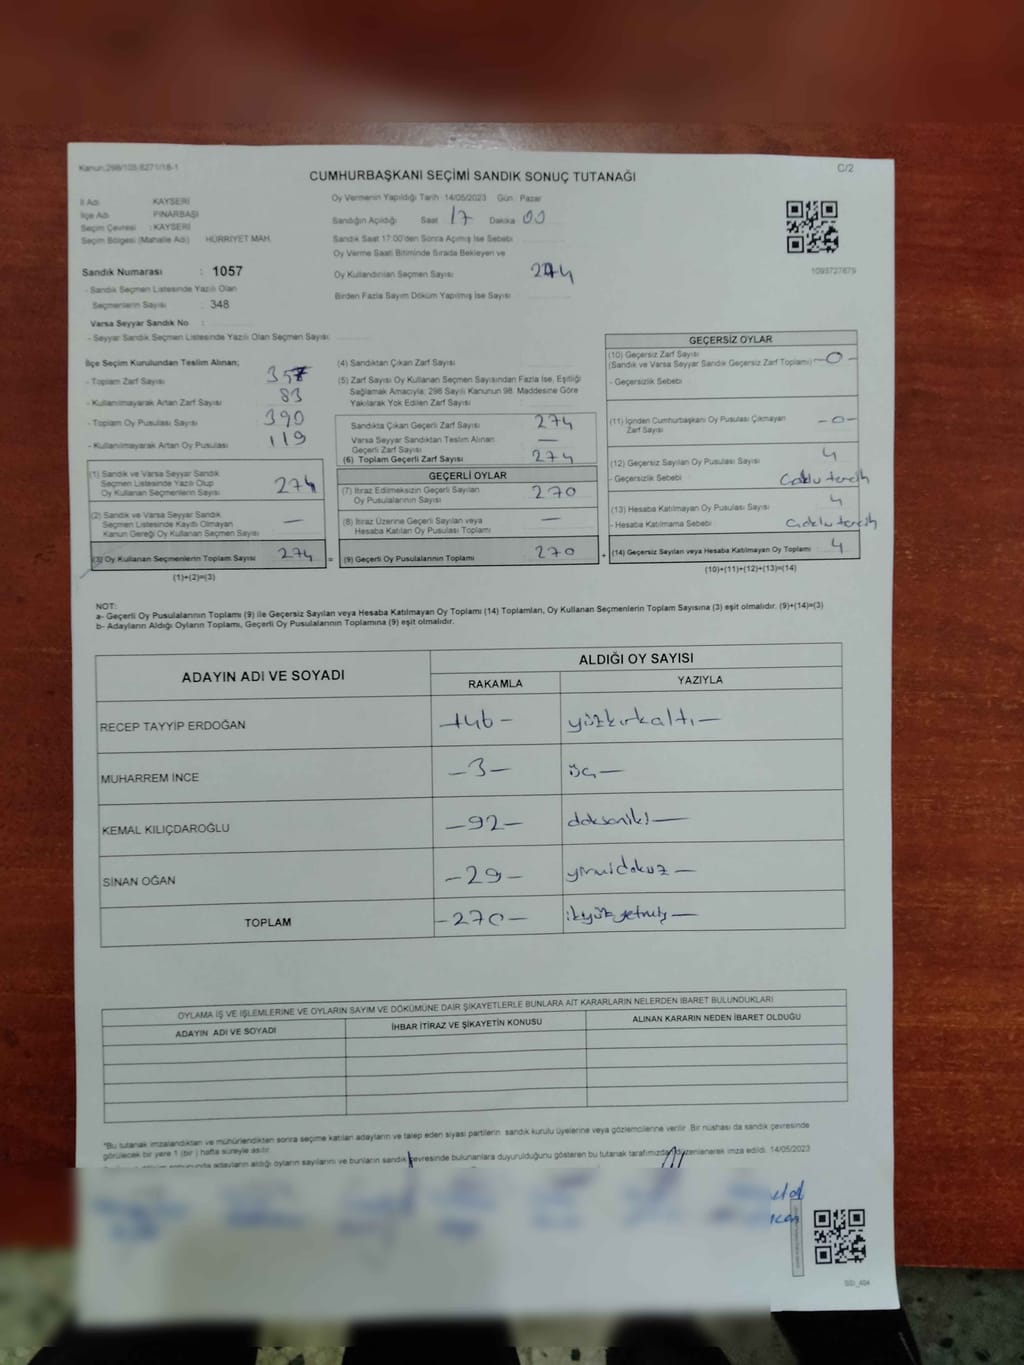 Kanun:298/105;6271/18-1
C/2
CUMHURBAŞKANI SEÇİMİ SANDIK SONUÇ TUTANAĞI
İl Adı KAYSERİ
İlçe Adı PINARBAŞI
Seçim Çevresi : KAYSERİ
Seçim Bölgesi (Mahalle Adı) HÜRRİYET MAH.
Oy Vermenin Yapıldığı Tarih :14/05/2023 Gün : Pazar
Sandığın Açıldığı Saat 17 Dakika 00
Sandık Saat 17:00'den Sonra Açımış İse Sebebi
Oy Verme Saati Bitiminde Sırada Bekleyen ve
Oy Kullandırılan Seçmen Sayısı 274
Birden Fazla Sayım Döküm Yapılmış İse Sayısı
1093727879
Sandık Numarası : 1057
- Sandık Seçmen Listesinde Yazılı Olan
Seçmenlerin Sayısı : 348
Varsa Seyyar Sandık No :
- Seyyar Sandık Seçmen Listesinde Yazılı Olan Seçmen Sayısı:
İlçe Seçim Kurulundan Teslim Alınan;
- Toplam Zarf Sayısı 357
- Kullanılmayarak Artan Zarf Sayısı 83
- Toplam Oy Pusulası Sayısı 390
- Kullanılmayarak Artan Oy Pusulası 119
(1) Sandık ve Varsa Seyyar Sandık
Seçmen Listesinde Yazılı Olup
Oy Kullanan Seçmenlerin Sayısı 274
(2) Sandık ve Varsa Seyyar Sandık
Seçmen Listesinde Kayıtlı Olmayan
Kanun Gereği Oy Kullanan Seçmen Sayısı —
(3) Oy Kullanan Seçmenlerin Toplam Sayısı 274 =
(1)+(2)=(3)
(4) Sandıktan Çıkan Zarf Sayısı
(5) Zarf Sayısı Oy Kullanan Seçmen Sayısından Fazla İse, Eşitliği
Sağlamak Amacıyla; 298 Sayılı Kanunun 98. Maddesine Göre
Yakılarak Yok Edilen Zarf Sayısı
Sandıkta Çıkan Geçerli Zarf Sayısı 274
Varsa Seyyar Sandıktan Teslim Alınan
Geçerli Zarf Sayısı —
(6) Toplam Geçerli Zarf Sayısı 274
GEÇERLİ OYLAR
(7) İtiraz Edilmeksizin Geçerli Sayılan
Oy Pusulalarının Sayısı 270
(8) İtiraz Üzerine Geçerli Sayılan veya
Hesaba Katılan Oy Pusulası Toplamı —
(9) Geçerli Oy Pusulalarının Toplamı 270 +
GEÇERSİZ OYLAR
(10) Geçersiz Zarf Sayısı
(Sandık ve Varsa Seyyar Sandık Geçersiz Zarf Toplamı) -0-
- Geçersizlik Sebebi
(11) İçinden Cumhurbaşkanı Oy Pusulası Çıkmayan
Zarf Sayısı -0-
(12) Geçersiz Sayılan Oy Pusulası Sayısı 4
- Geçersizlik Sebebi Çoklu tercih
(13) Hesaba Katılmayan Oy Pusulası Sayısı 4
- Hesaba Katılmama Sebebi Çoklu tercih
(14) Geçersiz Sayılan veya Hesaba Katılmayan Oy Toplamı 4
(10)+(11)+(12)+(13)=(14)
NOT:
a- Geçerli Oy Pusulalarının Toplamı (9) ile Geçersiz Sayılan veya Hesaba Katılmayan Oy Toplamı (14) Toplamları, Oy Kullanan Seçmenlerin Toplam Sayısına (3) eşit olmalıdır. (9)+(14)=(3)
b- Adayların Aldığı Oyların Toplamı, Geçerli Oy Pusulalarının Toplamına (9) eşit olmalıdır.
ADAYIN ADI VE SOYADI
ALDIĞI OY SAYISI
RAKAMLA YAZIYLA
RECEP TAYYİP ERDOĞAN 146- yüzkırkaltı—
MUHARREM İNCE -3- üç—
KEMAL KILIÇDAROĞLU -92- doksaniki—
SİNAN OĞAN -29- yirmidokuz—
TOPLAM -270- ikiyüzyetmiş—
OYLAMA İŞ VE İŞLEMLERİNE VE OYLARIN SAYIM VE DÖKÜMÜNE DAİR ŞİKAYETLERLE BUNLARA AİT KARARLARIN NELERDEN İBARET BULUNDUKLARI
ADAYIN ADI VE SOYADI İHBAR İTİRAZ VE ŞİKAYETİN KONUSU ALINAN KARARIN NEDEN İBARET OLDUĞU
*Bu tutanak imzalandıktan ve mühürlendikten sonra seçime katılan adayların ve talep eden siyasi partilerin sandık kurulu üyelerine veya gözlemcilerine verilir. Bir nüshası da sandık çevresinde
görülecek bir yere 1 (bir) hafta süreyle asılır.
adayların aldığı oyların sayılarını ve bunların sandık çevresinde bulunanlara duyurulduğunu gösteren bu tutanak tarafımızdan düzenlenerek imza edildi. 14/05/2023